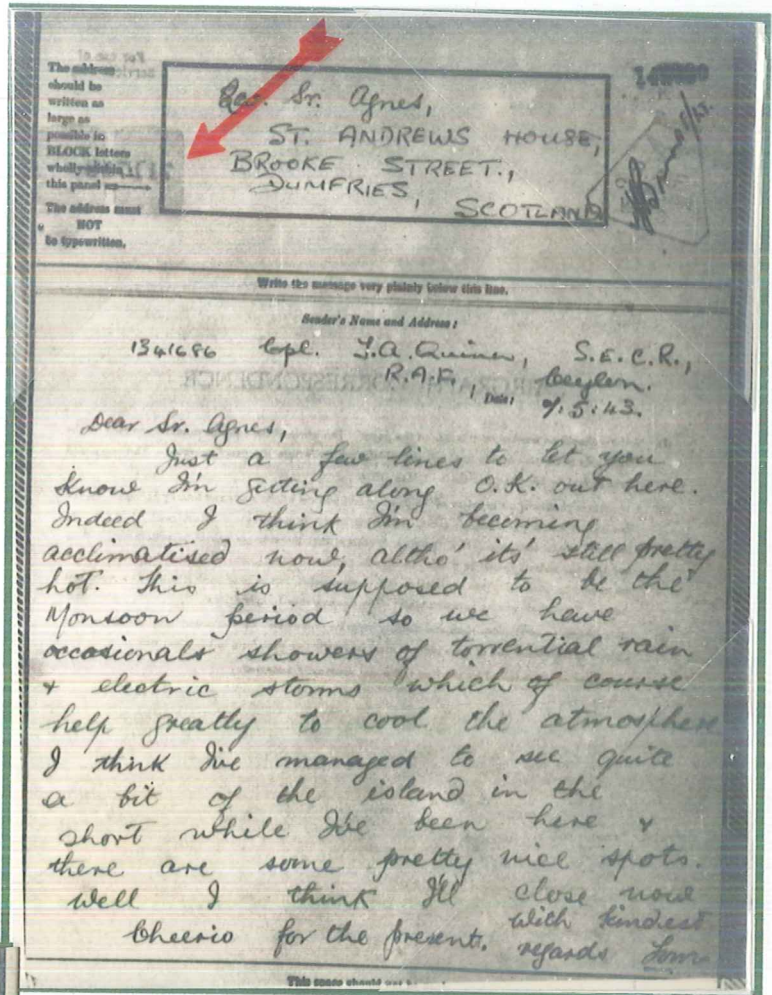 The address
should be
written as
large as
possible in
BLOCK letters
wholly within
this panel
The address must
NOT
be typewritten.
Rev. Sr. Agnes,
ST. ANDREWS HOUSE,
BROOKE STREET.,
DUMFRIES,
SCOTLAND
Write the message very plainly below this line.
Sender's Name and Address:
1341686 Cpl. S.E.C.R.,
R.A.F., Ceylon.
Date: 9:5:43.
Dear Sr. Agnes,
Just a few lines to let you
know I'm getting along O.K. out here.
Indeed I think I'm becoming
acclimatised now, altho' its' still pretty
hot. This is supposed to be the
Monsoon period so we have
occasionals showers of torrential rain
+ electric storms which of course
help greatly to cool the atmosphere
I think I've managed to see quite
a bit of the island in the
short while I've been here +
there are some pretty nice spots.
Well I think I'll close now
Cheerio for the present. with kindest
regards Tom